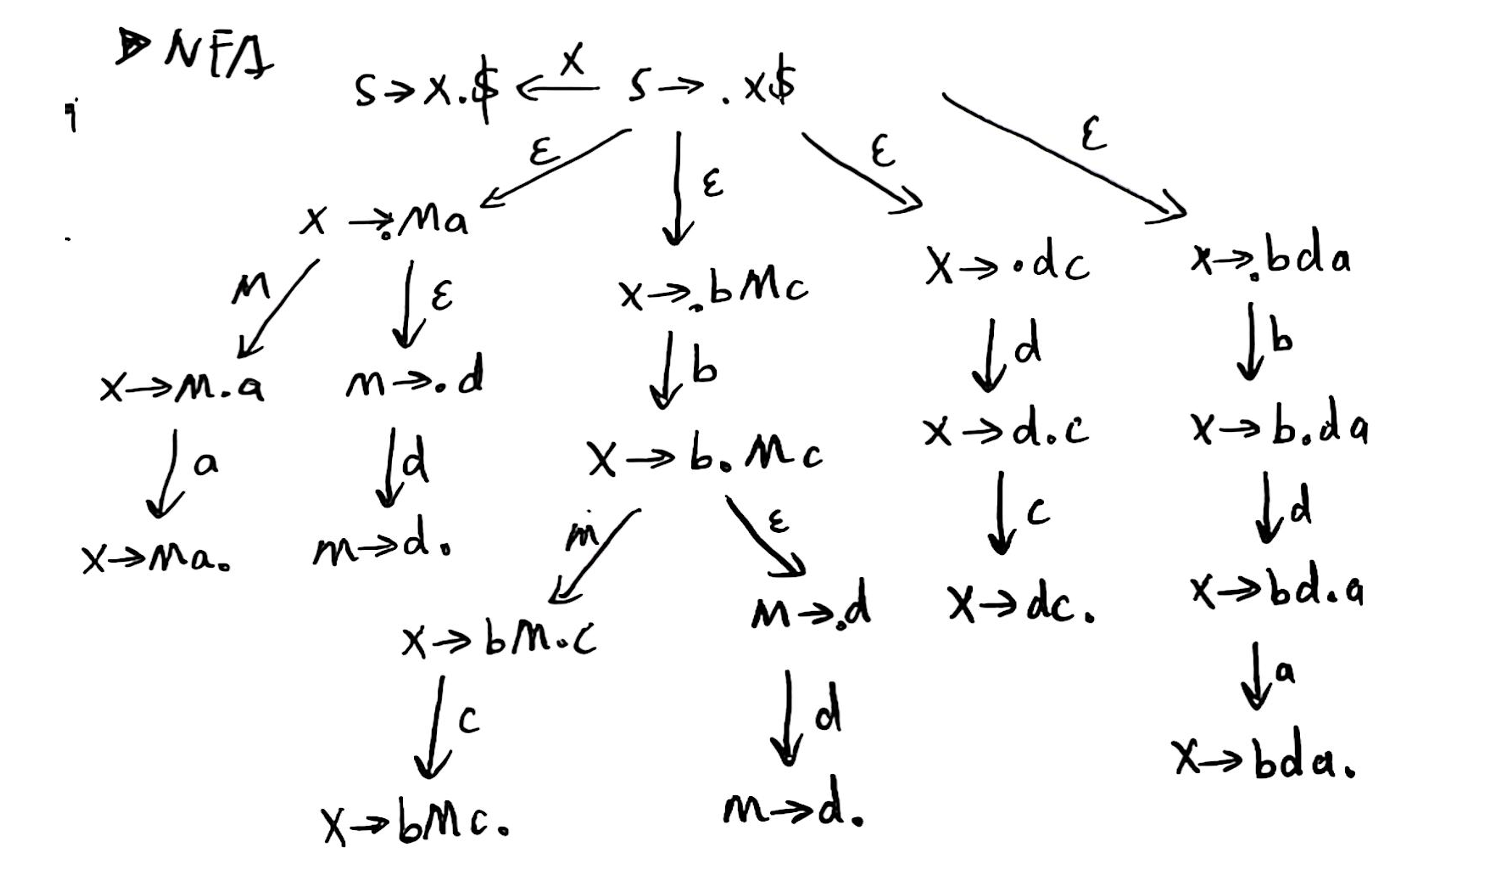 NFA
S→X.$ ←X— S→.X$
ε ε ε ε
X→.Ma
X→.bMc
X→.dc
X→.bda
M ε b d b
X→M.a
M→.d
X→b.Mc
X→d.c
X→b.da
a d M ε c d
X→Ma.
M→d.
X→bM.c
M→.d
X→dc.
X→bd.a
c d a
X→bMc.
M→d.
X→bda.